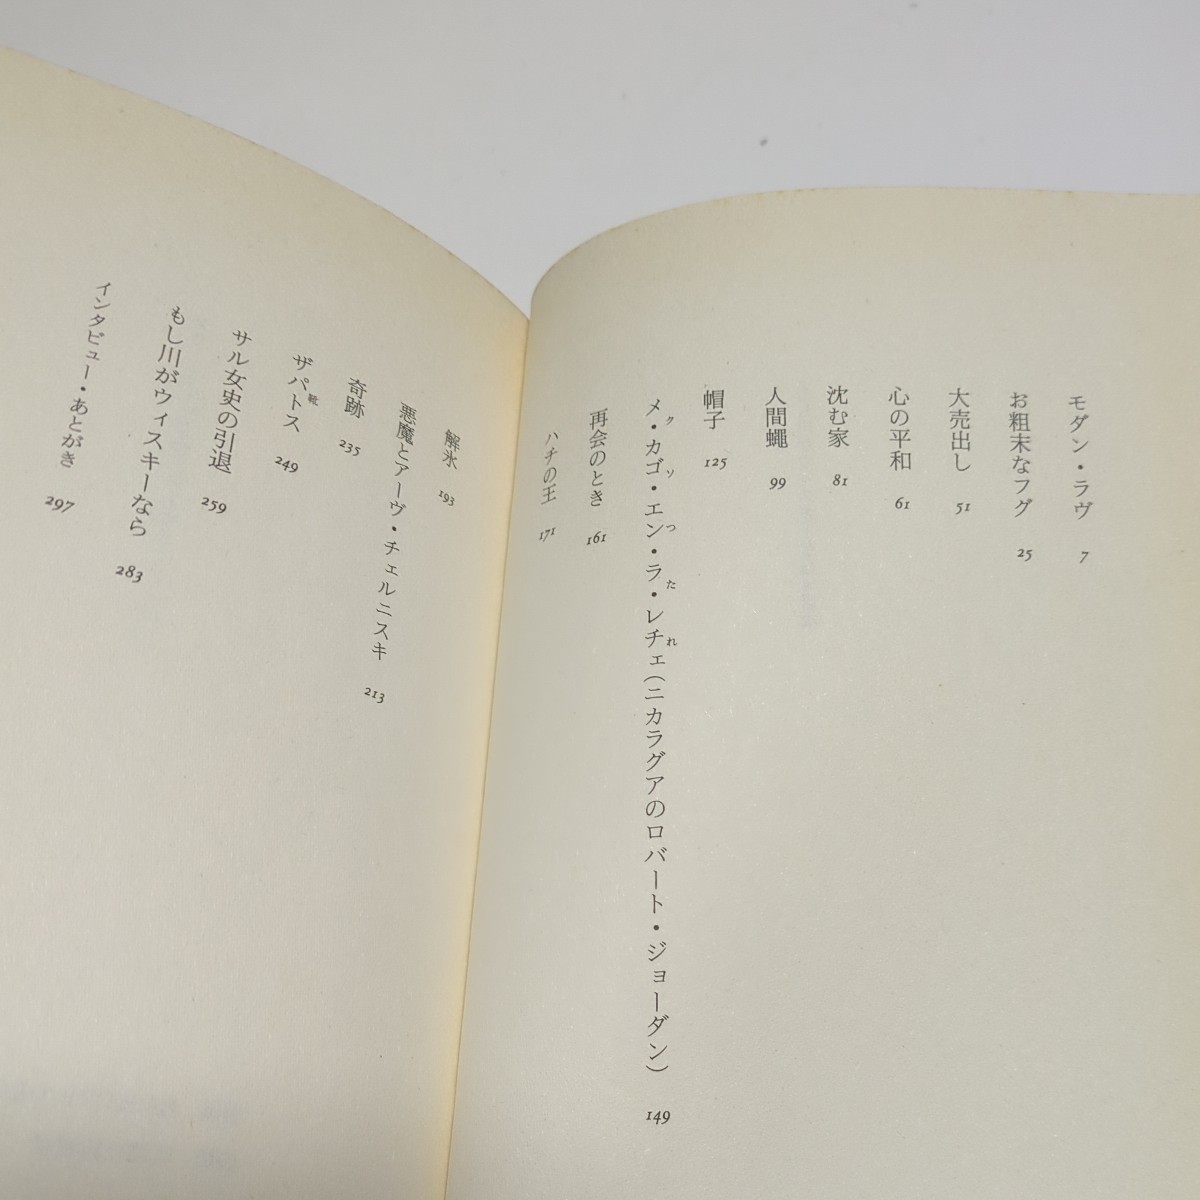 モダン・ラヴ 7
お粗末なフグ 25
大売出し 51
心の平和 61
沈む家 81
人間蠅 99
帽子 125
メ・カゴ・エン・ラ・レチェ(ニカラグアのロバート・ジョーダン) 149
クソったれ
再会のとき 161
ハチの王 171
解氷 193
悪魔とアーヴ・チェルニスキ 213
奇跡 235
ザパトス 249
靴
サル女史の引退 259
もし川がウィスキーなら 283
インタビュー・あとがき 297